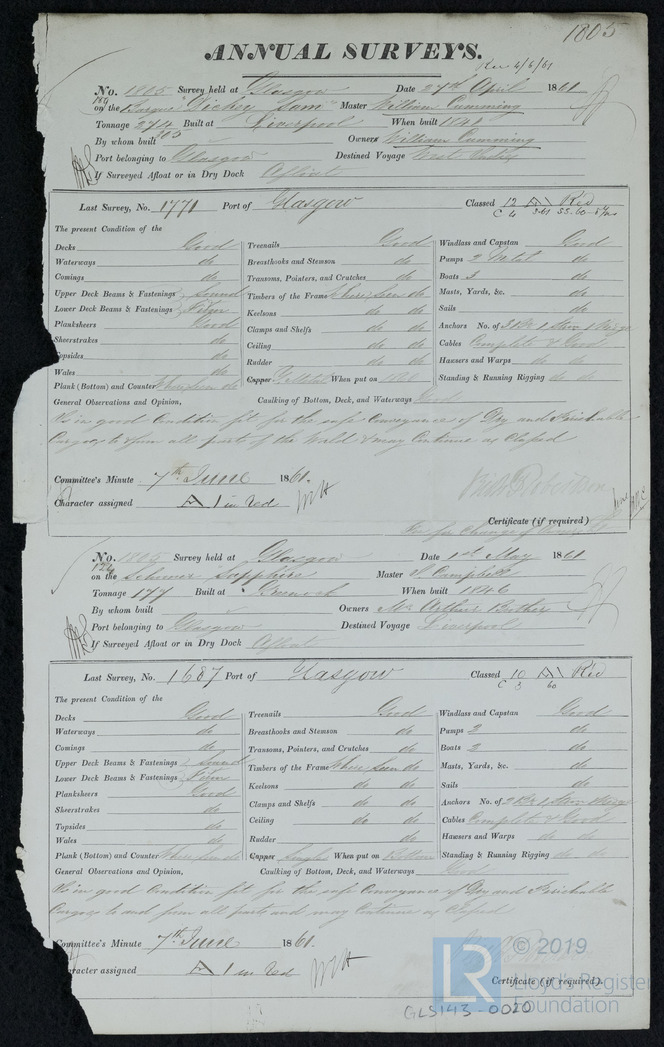 1805
ANNUAL SURVEYS.
Rec 4/6/61
No. 1805 Survey held at Glasgow Date 27th April 1861
on the Barque "Dickey Sam" Master William Cumming
Tonnage 274 Built at Liverpool When built 1841
305
By whom built Owners William Cumming
Port belonging to Glasgow Destined Voyage West
If Surveyed Afloat or in Dry Dock Afloat
Last Survey, No. 1771 Port of Glasgow Classed 12 A1 Red
The present Condition of the
Decks Good Treenails Good Windlass and Capstan Good
Waterways do Breasthooks and Stemson do Pumps 2 Metal do
Comings do Transoms, Pointers, and Crutches do Boats 3 do
Upper Deck Beams & Fastenings Sound Timbers of the Frame Where Seen do Masts, Yards, &c. do
Lower Deck Beams & Fastenings Firm Keelsons do do Sails do
Planksheers Good Clamps and Shelfs do do Anchors No. of 3 Br 1 Strm 1 Kedge
Sheerstrakes do Ceiling do do Cables Complete & Good
Topsides do Rudder do Hawsers and Warps do do
Wales do Copper Y. Metal When put on Standing & Running Rigging do do
Plank (Bottom) and Counter Where seen do
General Observations and Opinion, Caulking of Bottom, Deck, and Waterways Good
Is in good Condition fit for the safe Conveyance of Dry and Perishable
Cargoes to & from all parts of the World & may Continue as Classed
Committee's Minute 7th June 1861.
Character assigned A 1 in red
Robertson
Certificate (if required)
No. 1805 Survey held at Glasgow Date 1st May 1861
on the Schooner Sapphire Master Campbell
Tonnage 177 Built at Greenock When built 1846
By whom built Owners McArthur Brothers
Port belonging to Glasgow Destined Voyage Liverpool
If Surveyed Afloat or in Dry Dock Afloat
Last Survey, No. 1687 Port of Glasgow Classed 10 A1 Red
C 3 60
The present Condition of the
Decks Good Treenails Good Windlass and Capstan Good
Waterways do Breasthooks and Stemson do Pumps 2 do
Comings do Transoms, Pointers, and Crutches do Boats 2 do
Upper Deck Beams & Fastenings Sound Timbers of the Frame Where Seen do Masts, Yards, &c. do
Lower Deck Beams & Fastenings Firm Keelsons do do Sails do
Planksheers Good Clamps and Shelfs do do Anchors No. of 2 Br 1 Strm 1 Kedge
Sheerstrakes do Ceiling do do Cables Complete & Good
Topsides do Rudder do Hawsers and Warps do do
Wales do Copper When put on Standing & Running Rigging do do
Plank (Bottom) and Counter Where seen do
General Observations and Opinion, Caulking of Bottom, Deck, and Waterways Good
Is in good Condition fit for the safe Conveyance of Dry and Perishable
Cargoes to and from all parts and may Continue as Classed
Committee's Minute 7th June 1861.
Character assigned A 1 in Red
Certificate (if required).
LR © 2019
Lloyd's Register
Foundation
GLS143-0020